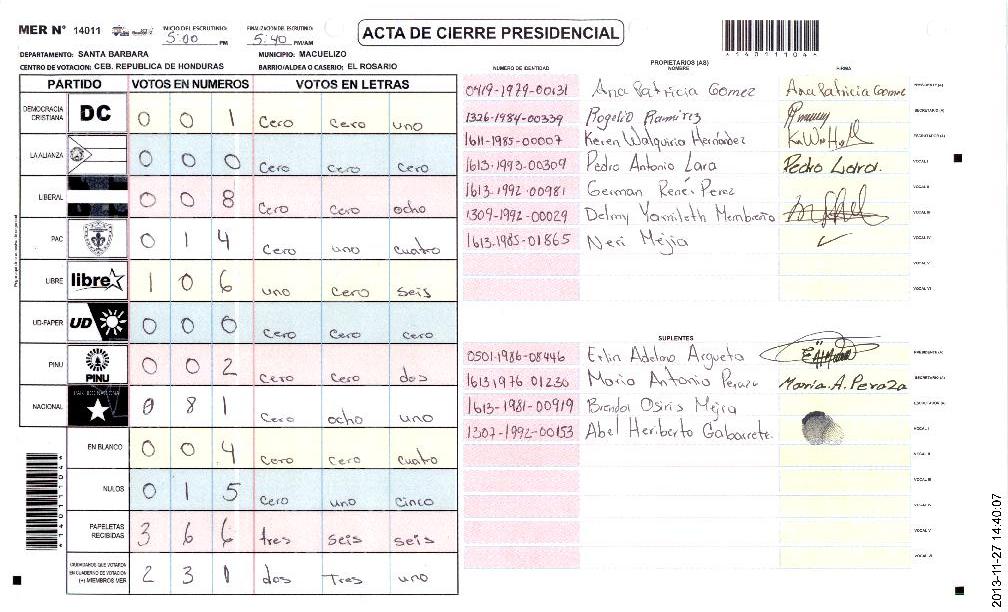 MER N° 14011 INICIO DEL ESCRUTINIO: 5:00 PM FINALIZACION DEL ESCRUTINIO: 5:40 PM/AM
ACTA DE CIERRE PRESIDENCIAL
DEPARTAMENTO: SANTA BARBARA MUNICIPIO: MACUELIZO
CENTRO DE VOTACION: CEB. REPUBLICA DE HONDURAS BARRIO/ALDEA O CASERIO: EL ROSARIO
PARTIDO VOTOS EN NUMEROS VOTOS EN LETRAS
DEMOCRACIA CRISTIANA DC 0 0 1 Cero Cero uno
LA ALIANZA 0 0 0 Cero Cero Cero
LIBERAL 0 0 8 Cero Cero ocho
PAC 0 1 4 Cero uno cuatro
LIBRE libre 1 0 6 uno Cero seis
UD-FAPER UD 0 0 0 Cero Cero Cero
PINU PINU 0 0 2 Cero Cero dos
NACIONAL PARTIDO NACIONAL 0 8 1 Cero ocho uno
EN BLANCO 0 0 4 Cero Cero cuatro
NULOS 0 1 5 Cero uno Cinco
PAPELETAS RECIBIDAS 3 6 6 tres seis seis
CIUDADANOS QUE VOTARON EN CUADERNO DE VOTACION (+) MIEMBROS MER 2 3 1 dos Tres uno
PROPIETARIOS (AS)
NUMERO DE IDENTIDAD NOMBRE FIRMA
0419-1979-00131 Ana Patricia Gomez Ana Patricia Gomez PRESIDENTE (A)
1326-1984-00339 Rogelio Ramirez SECRETARIO (A)
1611-1985-00007 Keren Walquiria Hernández ESCRUTADOR (A)
1613-1993-00309 Pedro Antonio Lara Pedro Lara. VOCAL I
1613-1992-00981 German René Perez VOCAL II
1309-1992-00029 Delmy Yamileth Membreño VOCAL III
1613-1985-01865 Neri Mejia VOCAL IV
VOCAL V
VOCAL VI
SUPLENTES
0501-1986-08446 Erlin Adelmo Argueta PRESIDENTE (A)
1613 1976 01230 Maria Antonia Peraza Maria. A. Peraza SECRETARIO (A)
1613-1981-00919 Brenda Osiris Mejia ESCRUTADOR (A)
1307-1992-00153 Abel Heriberto Gabarrete. VOCAL I
VOCAL II
VOCAL III
VOCAL IV
VOCAL V
VOCAL VI
2013-11-27 14:40:07